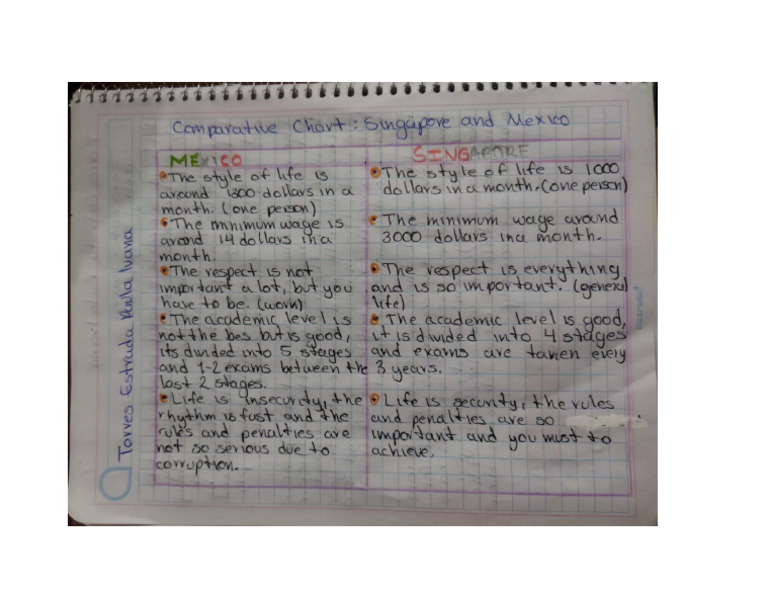 Comparative Chart: Singapore and Mexico
MEXICO
The style of life is
around 1300 dollars in a
month. (one person)
The minimum wage is
around 14 dollars in a
month.
The respect is not
important a lot, but you
have to be. (worn)
The academic level is
not the bes but is good,
its divided into 5 stages
and 1-2 exams between the
last 2 stages.
Life is insecurity, the
rhythm is fast and the
rules and penalties are
not so serious due to
corruption.
SINGAPORE
The style of life is 1000
dollars in a month. (one person)
The minimum wage around
3000 dollars in a month.
The respect is everything
and is so important. (general
life)
The academic level is good,
it is divided into 4 stages
and exams are taken every
3 years.
Life is security, the rules
and penalties are so
important and you must to
achieve.
Torres Estrada Paula Ivana